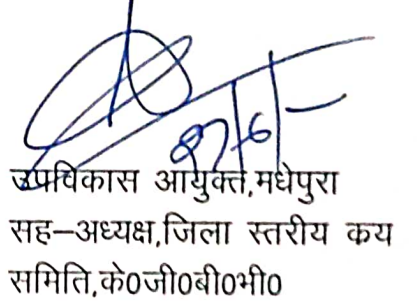 उपविकास आयुक्त,मधेपुरा
सह–अध्यक्ष,जिला स्तरीय कय
समिति,के0जी0बी0भी0